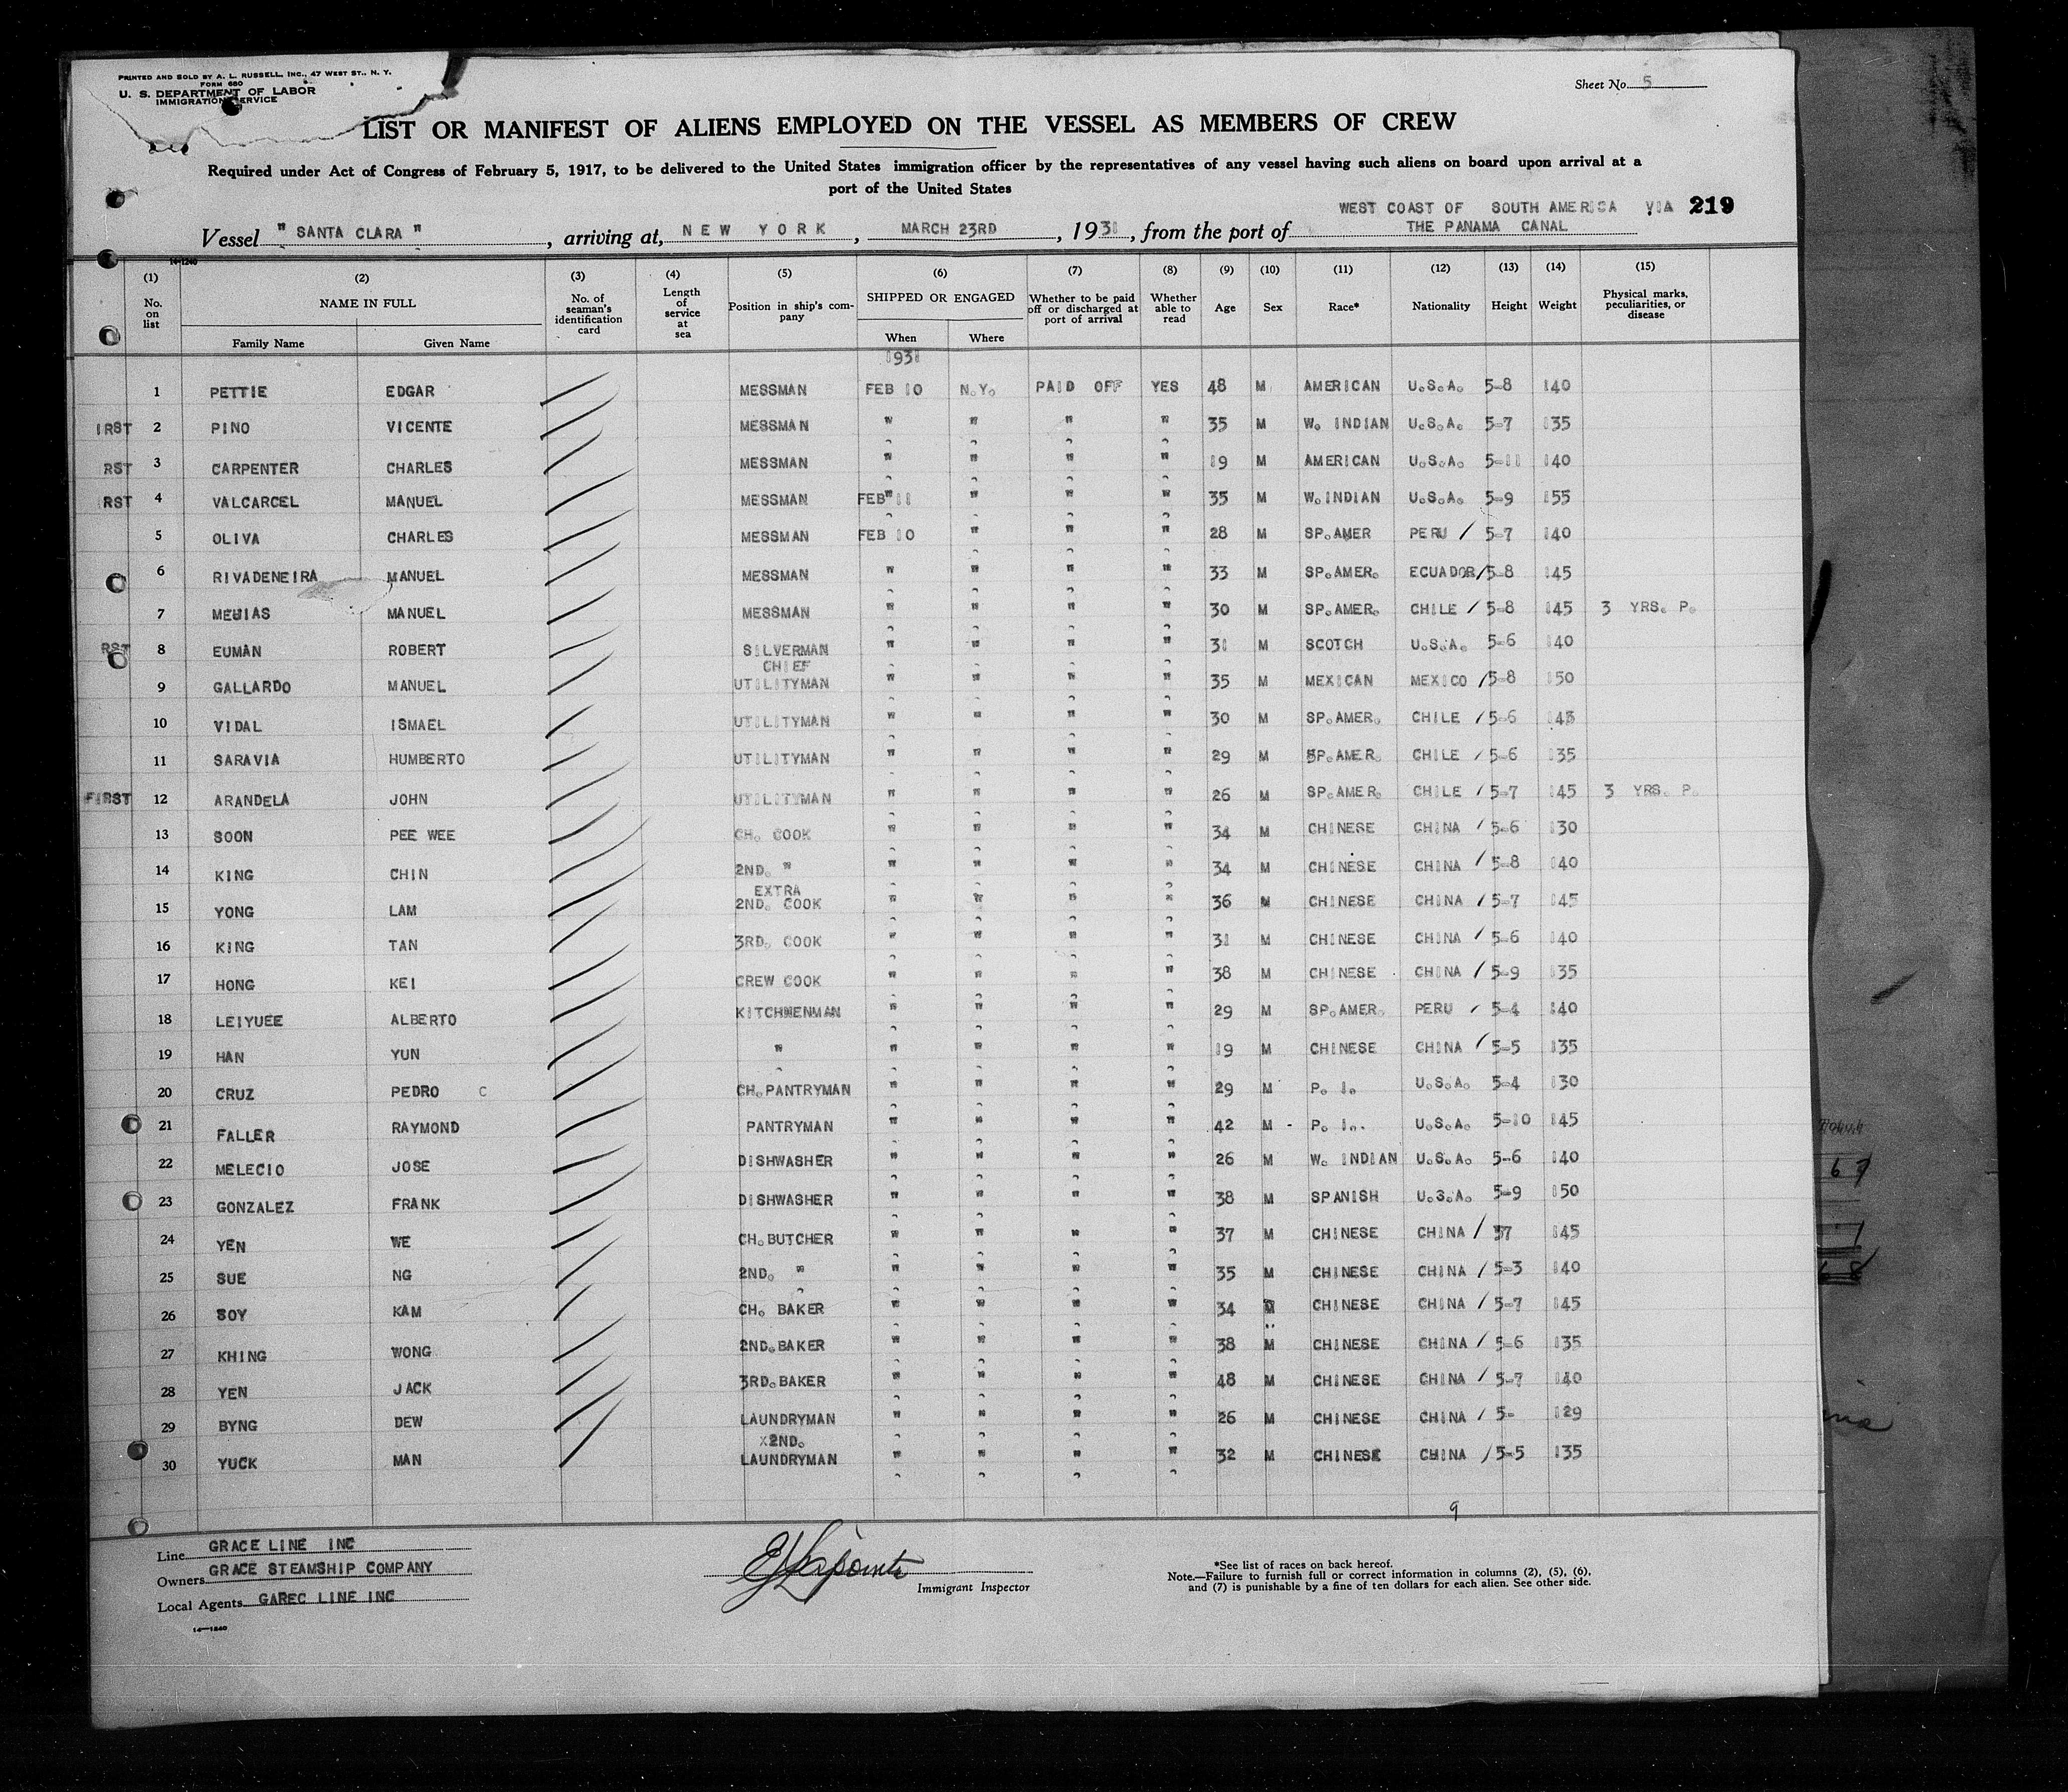 PRINTED AND SOLD BY A. L. RUSSELL, INC., 47 WEST ST., N. Y.
FORM 680
U. S. DEPARTMENT OF LABOR
IMMIGRATION SERVICE
Sheet No. 5
LIST OR MANIFEST OF ALIENS EMPLOYED ON THE VESSEL AS MEMBERS OF CREW
Required under Act of Congress of February 5, 1917, to be delivered to the United States immigration officer by the representatives of any vessel having such aliens on board upon arrival at a
port of the United States
WEST COAST OF SOUTH AMERICA VIA 219
Vessel " SANTA CLARA ", arriving at, NEW YORK, MARCH 23RD, 1931, from the port of THE PANAMA CANAL
14-1240
(1) (2) (3) (4) (5) (6) (7) (8) (9) (10) (11) (12) (13) (14) (15)
No. on list NAME IN FULL No. of seaman's identification card Length of service at sea Position in ship's company SHIPPED OR ENGAGED Whether to be paid off or discharged at port of arrival Whether able to read Age Sex Race* Nationality Height Weight Physical marks, peculiarities, or disease
Family Name Given Name When Where
1931
1 PETTIE EDGAR MESSMAN FEB 10 N.Y. PAID OFF YES 48 M AMERICAN U.S.A. 5-8 140
IRST 2 PINO VICENTE MESSMAN " " " " 35 M W. INDIAN U.S.A. 5-7 135
RST 3 CARPENTER CHARLES MESSMAN " " " " 19 M AMERICAN U.S.A. 5-11 140
IRST 4 VALCARCEL MANUEL MESSMAN FEB 11 " " " 35 M W.INDIAN U.S.A. 5-9 155
5 OLIVA CHARLES MESSMAN FEB 10 " " " 28 M SP.AMER PERU / 5-7 140
6 RIVADENEIRA MANUEL MESSMAN " " " " 33 M SP.AMER. ECUADOR / 5-8 145
7 MEJIAS MANUEL MESSMAN " " " " 30 M SP.AMER. CHILE / 5-8 145 3 YRS. P.
RST 8 EUMAN ROBERT SILVERMAN " " " " 31 M SCOTCH U.S.A. 5-6 140
CHIEF
9 GALLARDO MANUEL UTILITYMAN " " " " 35 M MEXICAN MEXICO / 5-8 150
10 VIDAL ISMAEL UTILITYMAN " " " " 30 M SP.AMER. CHILE / 5-6 143
11 SARAVIA HUMBERTO UTILITYMAN " " " " 29 M SP.AMER. CHILE / 5-6 135
FIRST 12 ARANDELA JOHN UTILITYMAN " " " " 26 M SP.AMER. CHILE / 5-7 145 3 YRS. P.
13 SOON PEE WEE CH. COOK " " " " 34 M CHINESE CHINA / 5-6 130
14 KING CHIN 2ND. " " " " " 34 M CHINESE CHINA / 5-8 140
EXTRA
15 YONG LAM 2ND. COOK " " " " 36 M CHINESE CHINA / 5-7 145
16 KING TAN 3RD. COOK " " " " 31 M CHINESE CHINA / 5-6 140
17 HONG KEI CREW COOK " " " " 38 M CHINESE CHINA / 5-9 135
18 LEIYUEE ALBERTO KITCHNENMAN " " " " 29 M SP.AMER. PERU / 5-4 140
19 HAN YUN " " " " " 19 M CHINESE CHINA / 5-5 135
20 CRUZ PEDRO C CH.PANTRYMAN " " " " 29 M P. I. U.S.A. 5-4 130
21 FALLER RAYMOND PANTRYMAN " " " " 42 M - P. I. U.S.A. 5-10 145
22 MELECIO JOSE DISHWASHER " " " " 26 M W. INDIAN U.S.A. 5-6 140
23 GONZALEZ FRANK DISHWASHER " " " " 38 M SPANISH U.S.A. 5-9 150
24 YEN WE CH.BUTCHER " " " " 37 M CHINESE CHINA / 57 145
25 SUE NG 2ND. " " " " " 35 M CHINESE CHINA / 5-3 140
26 SOY KAM CH. BAKER " " " " 34 M CHINESE CHINA / 5-7 145
27 KHING WONG 2ND.BAKER " " " " 38 M CHINESE CHINA / 5-6 135
28 YEN JACK 3RD.BAKER " " " " 48 M CHINESE CHINA / 5-7 140
29 BYNG DEW LAUNDRYMAN " " " " 26 M CHINESE CHINA / 5- 129
X2ND.
30 YUCK MAN LAUNDRYMAN " " " " 32 M CHINESE CHINA / 5-5 135
9
Line GRACE LINE INC
Owners GRACE STEAMSHIP COMPANY
Local Agents GAREC LINE INC
14-1240
Immigrant Inspector
*See list of races on back hereof.
Note.—Failure to furnish full or correct information in columns (2), (5), (6),
and (7) is punishable by a fine of ten dollars for each alien. See other side.